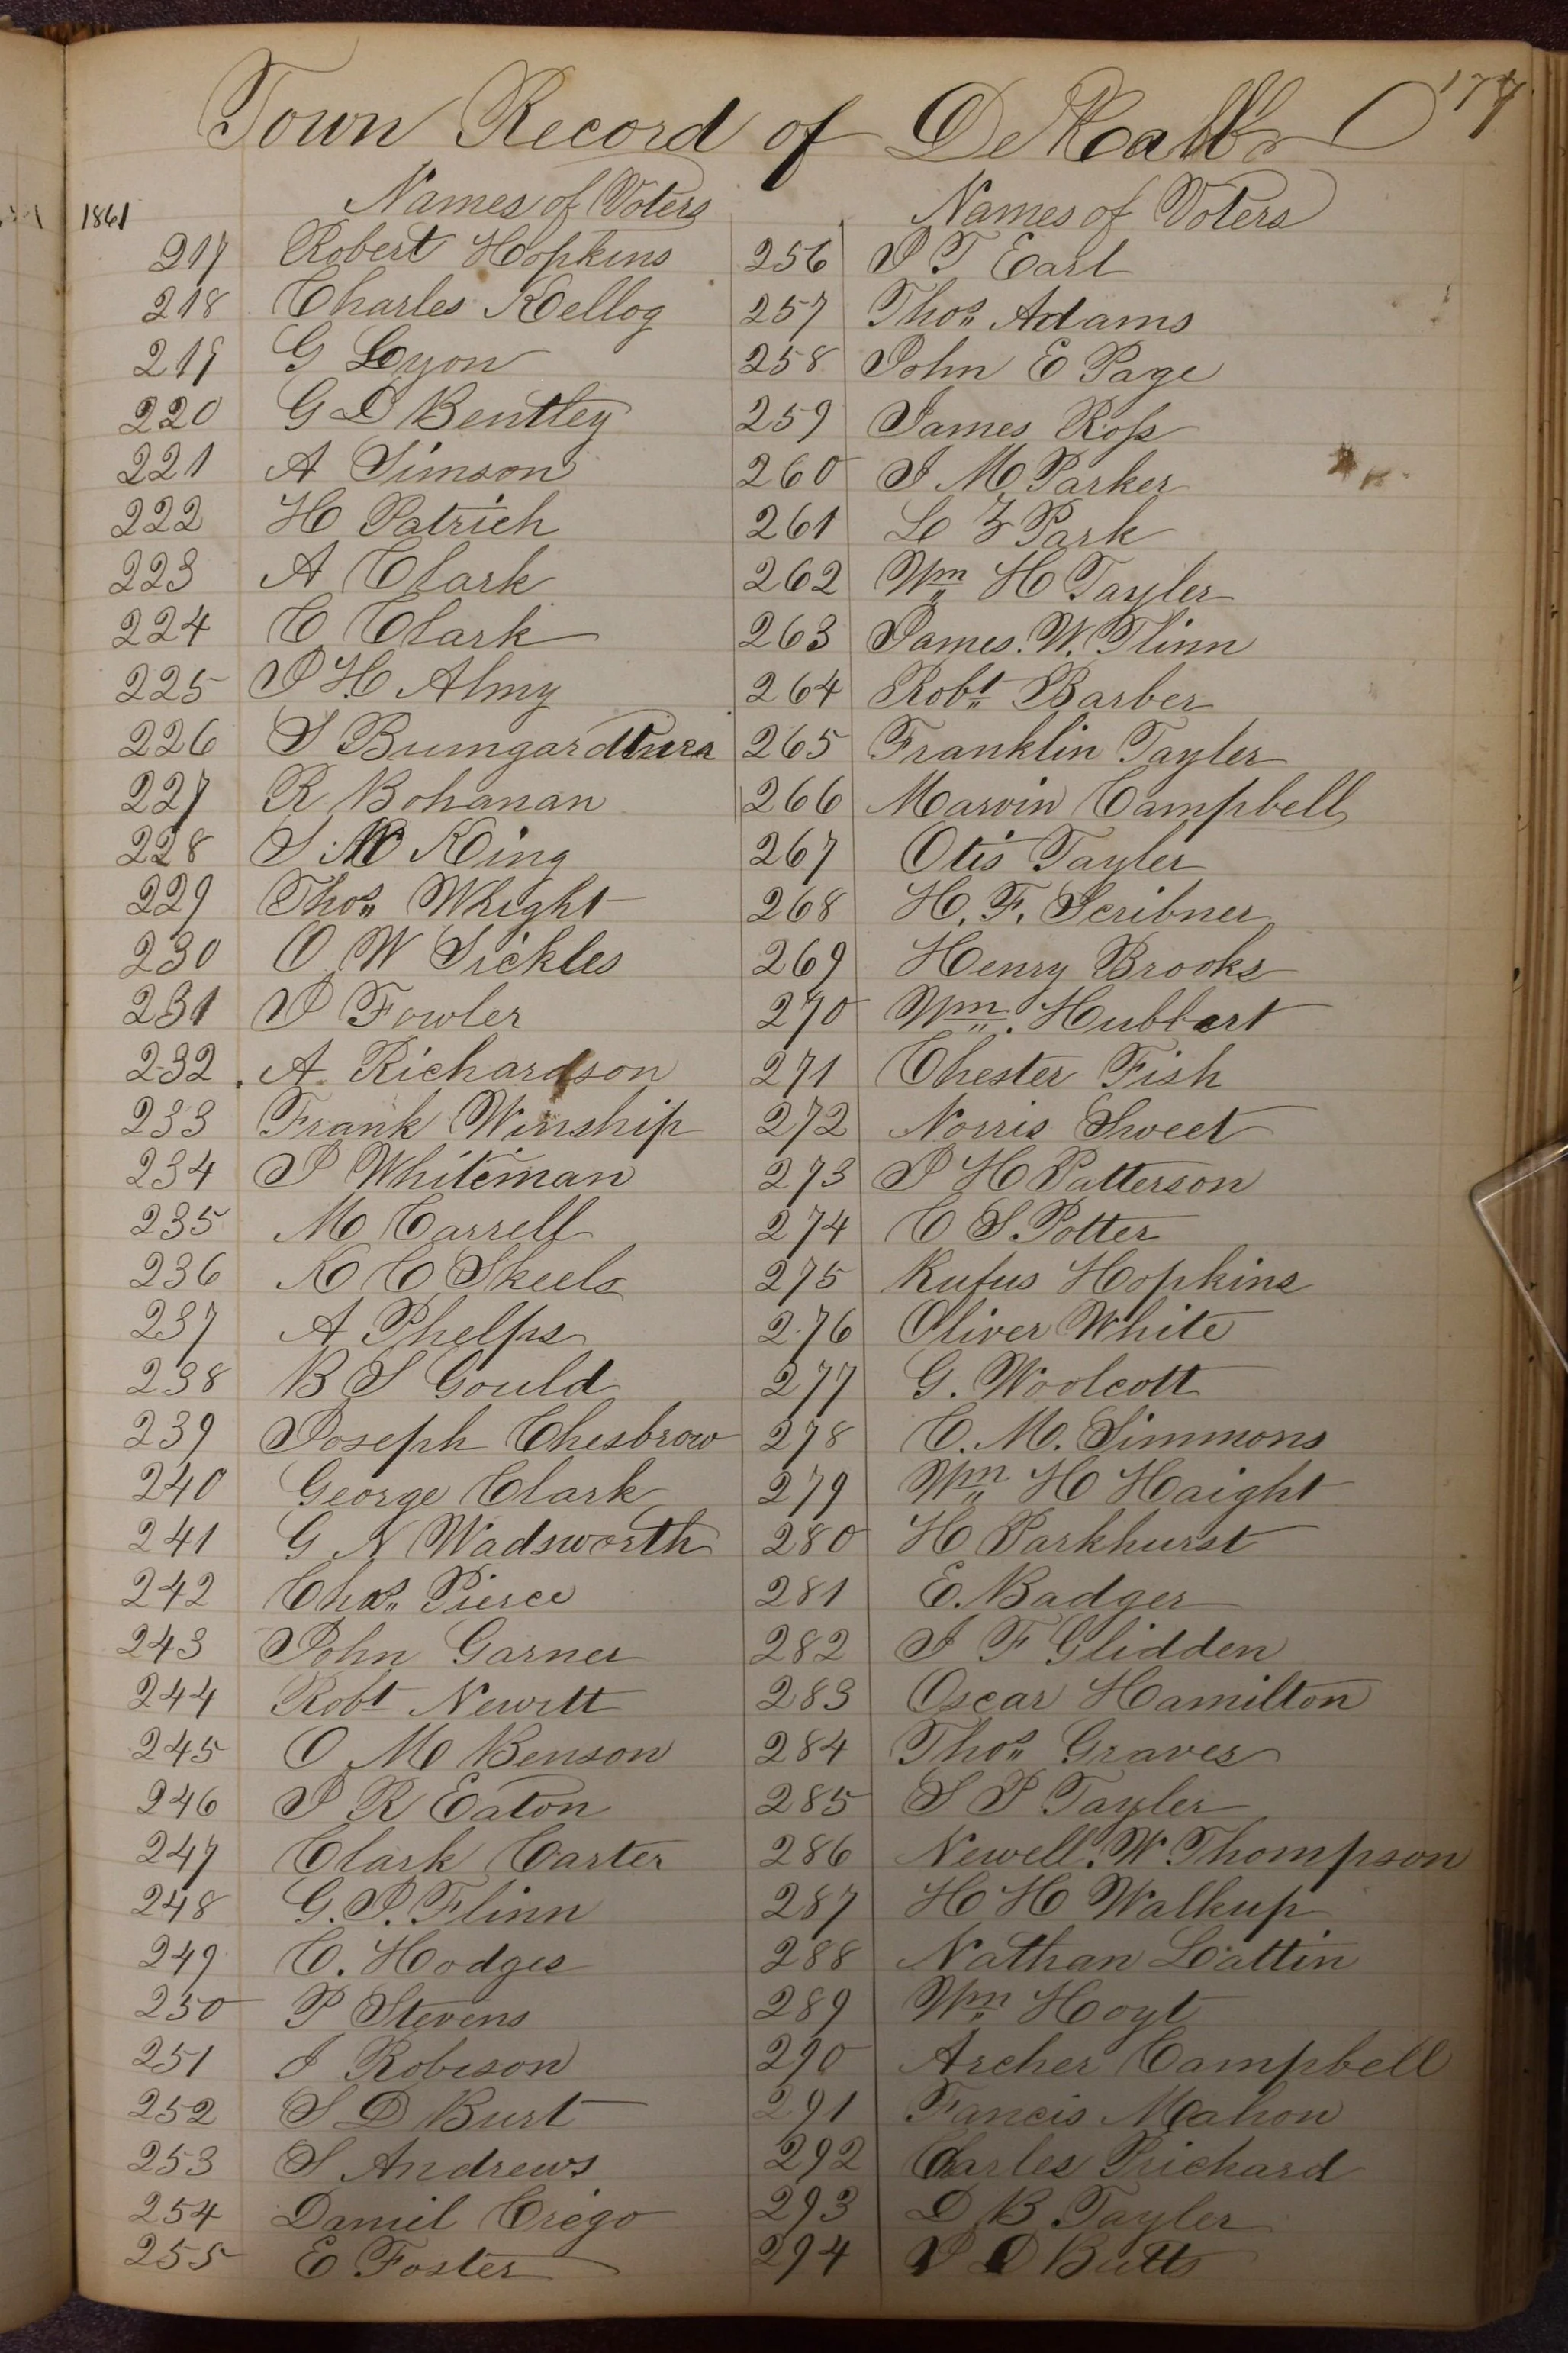 177
Town Record of DeKalb
1861
Names of Voters
217 Robert Hopkins
218 Charles Kellog
219 G Lyon
220 G D Bentley
221 A Simson
222 H Patrich
223 A Clark
224 C Clark
225 J H Almy
226 S
227 R Bohanan
228 S King
229 Thos Whight
230 O W Sickles
231 J Fowler
232 A Richardson
233 Frank Winship
234 J Whiteman
235 M Carrell
236 K C Skeels
237 A Phelps
238 B S Gould
239 Joseph Chesbrow
240 George Clark
241 G N Wadsworth
242 Chas Pierce
243 John Garner
244 Robt Newitt
245 O M Benson
246 J R Eaton
247 Clark Carter
248 G. J. Flinn
249 C. Hodges
250 P Stevens
251 J Robison
252 S D Burt
253 S Andrews
254 Daniel Crego
255 E Foster
Names of Voters
256 J T Earl
257 Thos Adams
258 John E Page
259 James Ross
260 J M Parker
261 L Z Park
262 Wm H Tayler
263 James. W. Flinn
264 Robt Barber
265 Franklin Tayler
266 Marvin Campbell
267 Otis Tayler
268 H. F. Scribner
269 Henry Brooks
270 Wm. Hubbart
271 Chester Fish
272 Norris Sweet
273 J H Patterson
274 C S. Potter
275 Rufus Hopkins
276 Oliver White
277 G. Woolcott
278 C. M. Simmons
279 Wm H Haight
280 H Parkhurst
281 E. Badger
282 J F Glidden
283 Oscar Hamilton
284 Thos Graves
285 S P Tayler
286 Newell. W Thompson
287 H H Walkup
288 Nathan Lattin
289 Wm Hoyt
290 Archer Campbell
291 Francis Mahon
292 Charles Prichard
293 D B Tayler
294 J D Butts